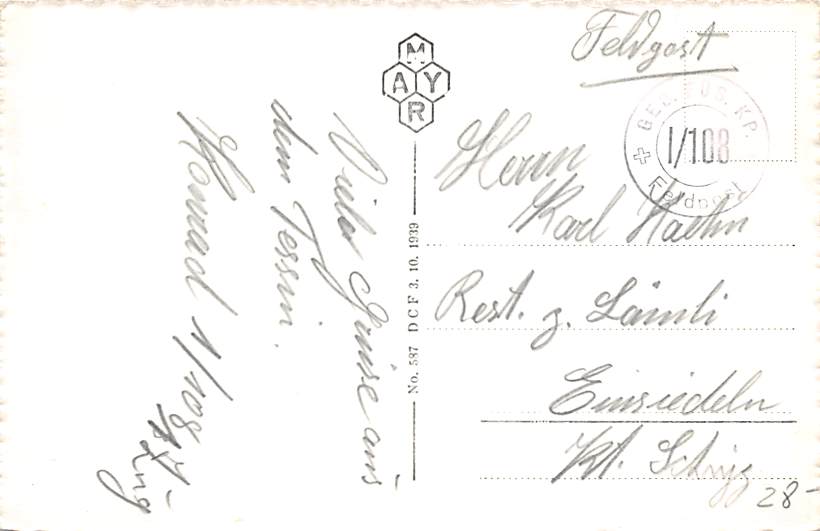 Feldpost
MAYR
GEB. FÜS. KP.
I/108
Feldpost
No. 587 DCF 3. 10. 1939
Herrn
Karl Kaelin
Rest. z. Lämli
Einsiedeln
Kt. Schwyz
28-
Viele Grüsse aus
dem Tessin.
Konrad 1/108
Zug